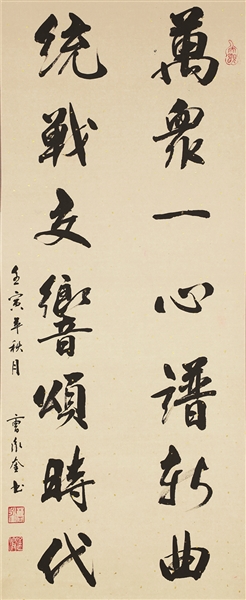 萬衆一心譜新曲
統戰交響頌時代
壬寅年秋月 曹永奎书